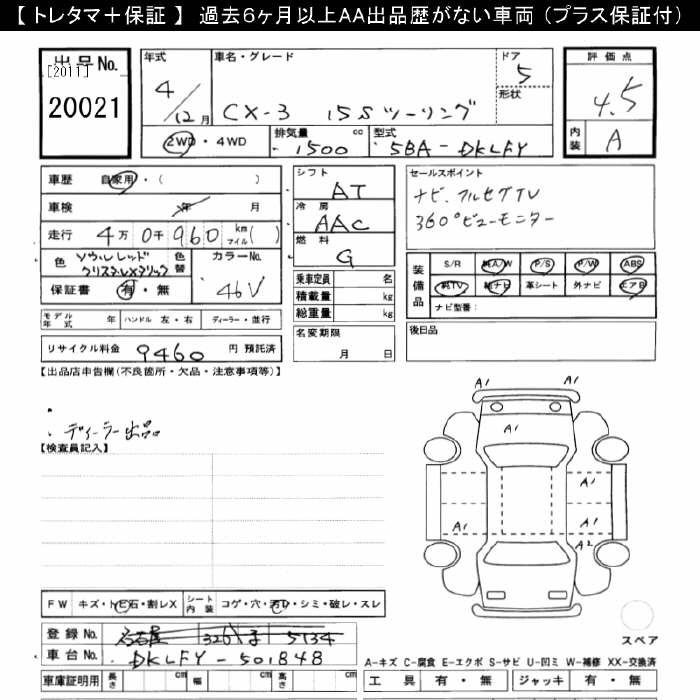 【 トレタマ＋保証 】 過去6ヶ月以上AA出品歴がない車両 (プラス保証付)
出品No.
[2011]
20021
年式
4/12月
車名・グレード
CX-3 15Sツーリング
ドア
5
形状
評価点
4.5
内装
A
2WD・4WD
排気量 1500 cc
型式 5BA-DKLFY
車歴 自家用・( )
車検 年 月
走行 4万0千960 km マイル( )
色 ソウルレッドクリスタルメタリック
色替
カラーNo. 46V
保証書 有・無
シフト AT
冷房 AAC
燃料 G
乗車定員 名
積載量 kg
総重量 kg
セールスポイント
ナビ、フルセグTV
360°ビューモニター
装備品
S/R 純A/W P/S P/W ABS
純TV 純ナビ 革シート 外ナビ エアB
ナビ型番:
モデル年式 年 ハンドル 左・右 ディーラー・並行
名変期限 月 日
後日品
リサイクル料金 9460 円 預託済
【出品店申告欄(不良箇所・欠品・注意事項等)】
・
、ディーラー出品
【検査員記入】
A1 A1
A1
A1
A1 A1
A2
FW キズ・トビ石・割レX シート内装 コゲ・穴・汚レ・シミ・破レ・スレ
スペア
登録No. 名古屋 326 5134
車台No. DKLFY-501848
A-キズ C-腐食 E-エクボ S-サビ U-凹ミ W-補修 XX-交換済
車庫証明用 長さ cm 幅 cm 高さ cm
工具 有・無 ジャッキ 有・無